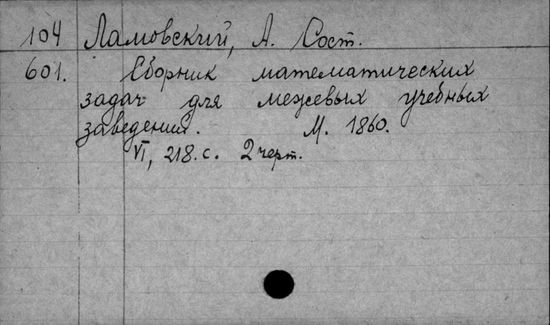 104 Ламовский, А. Сост.
601. Сборник математических
задач для межевых учебных
заведений. М. 1860.
VI, 218 с. 2 черт.